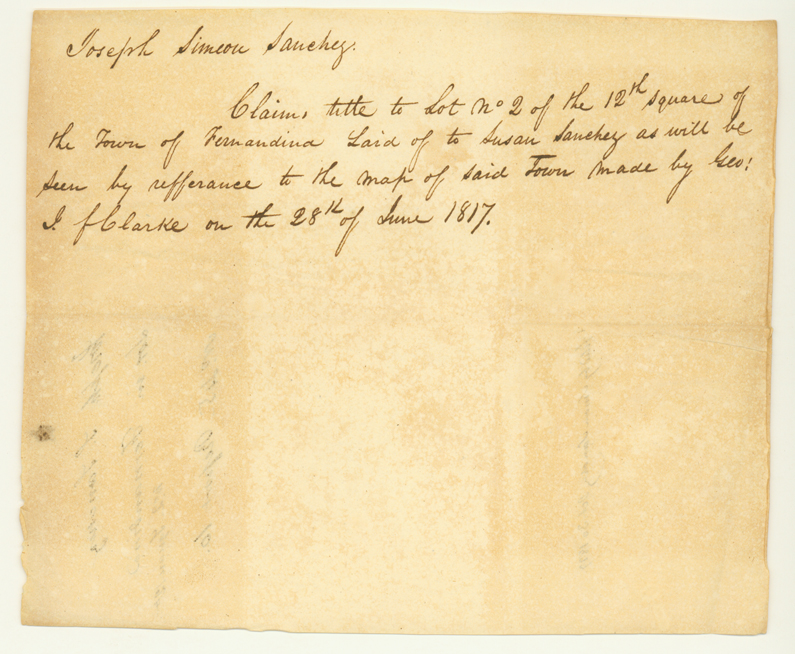 Joseph Simeon Sanchez.
Claims title to Lot No 2 of the 12th square of
the Town of Fernandina Laid of to Susan Sanchez as will be
seen by refferance to the map of said Town made by Geo:
I. F Clarke on the 28th of June 1817.